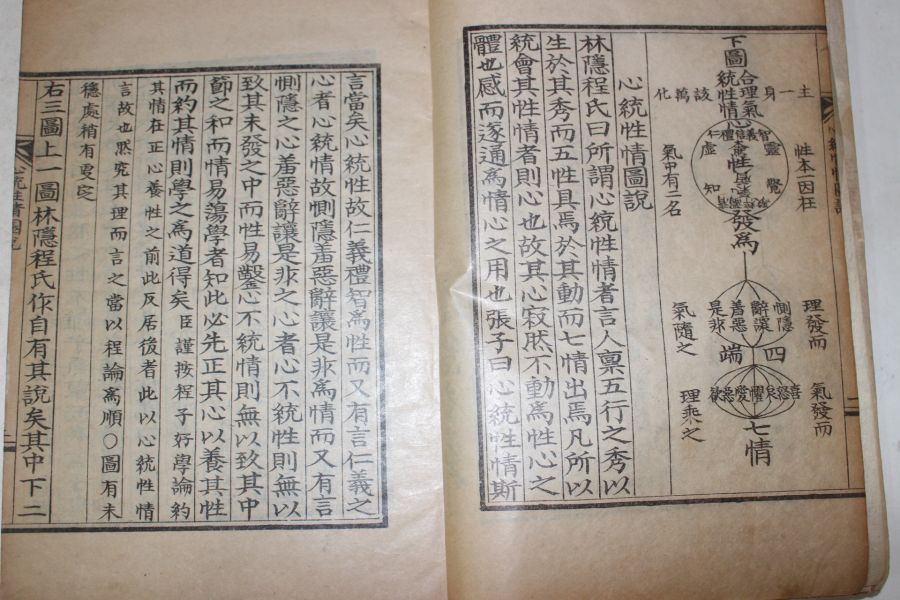 下圖
合理氣
統性情
主一身該萬化
心
智義信禮仁
虛靈知覺
性
性本一因在
氣中有二名
發爲
惻隱
辭讓
羞惡
是非
四端
理發而
氣隨之
喜怒哀懼愛惡欲
七情
氣發而
理乘之
心統性情圖說
林隱程氏曰所謂心統性情者言人稟五行之秀以
生於其秀而五性具焉於其動而七情出焉凡所以
統會其性情者則心也故其心寂然不動爲性心之
體也感而遂通爲情心之用也張子曰心統性情斯
言當矣心統性故仁義禮智爲性而又有言仁義之
心者心統情故惻隱羞惡辭讓是非爲情而又有言
惻隱之心羞惡辭讓是非之心者心不統性則無以
致其未發之中而性易鑿心不統情則無以致其中
節之和而情易蕩學者知此必先正其心以養其性
而約其情則學之爲道得矣臣謹按程子好學論約
其情在正心養性之前此反居後者此以心統性情
言故也然究其理而言之當以程論爲順○圖有未
穩處稍有更定
右三圖上一圖林隱程氏作自有其說矣其中下二
心統性情圖說